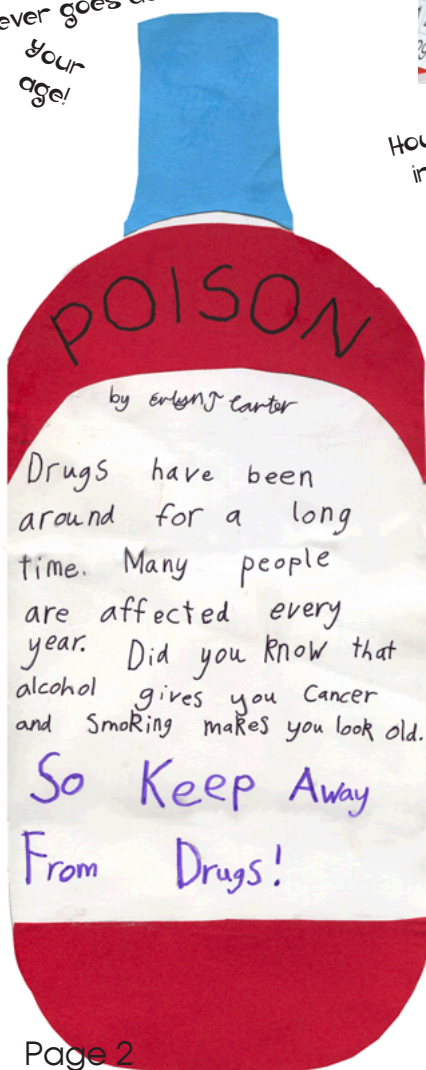 ever goes
your
age!
POISON
by Carter
Drugs have been
around for a long
time. Many people
are affected every
year. Did you know that
alcohol gives you Cancer
and Smoking makes you look old.
So Keep Away
From Drugs!
Page 2